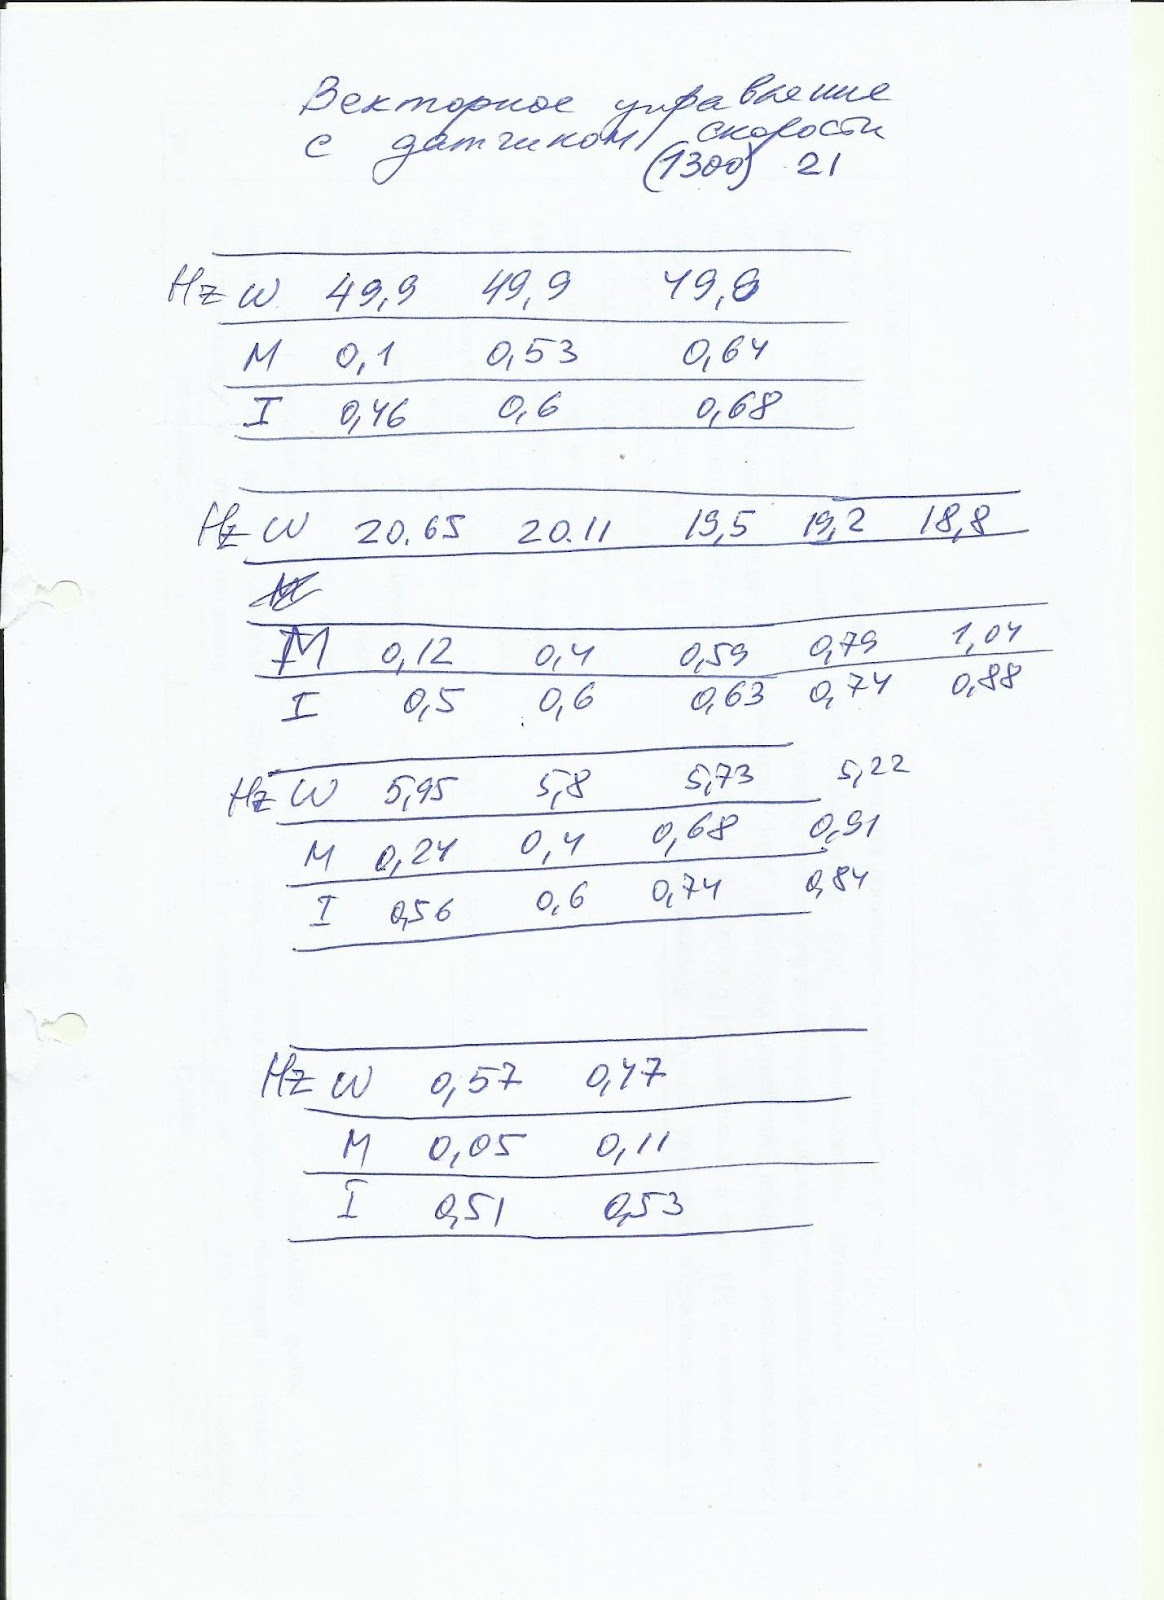 Векторное управление
с датчиком скорости
(1300) 21
Hz W 49,9 49,9 49,8
M 0,1 0,53 0,64
I 0,46 0,6 0,68
Hz W 20.65 20.11 19,5 19,2 18,8
M 0,12 0,4 0,59 0,79 1,04
I 0,5 0,6 0,63 0,74 0,88
Hz W 5,95 5,8 5,73 5,22
M 0,24 0,4 0,68 0,91
I 0,56 0,6 0,74 0,84
Hz W 0,57 0,47
M 0,05 0,11
I 0,51 0,53